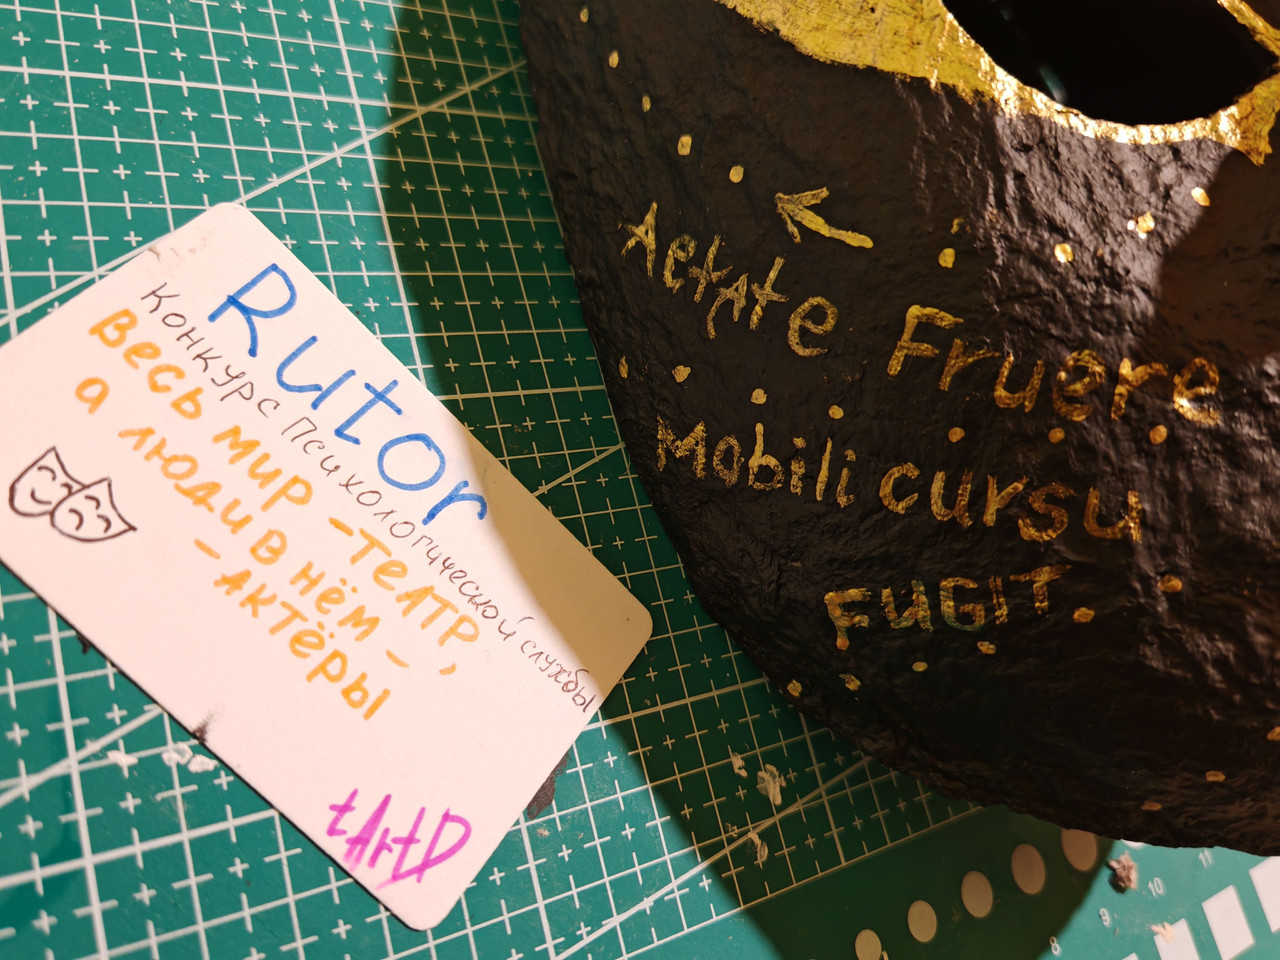 Rutor
Конкурс Психологической службы
Весь мир - театр,
а люди в нём -
- актёры
tArtD
Aetate Fruere
Mobili cursu
FUGIT.
10
9
8